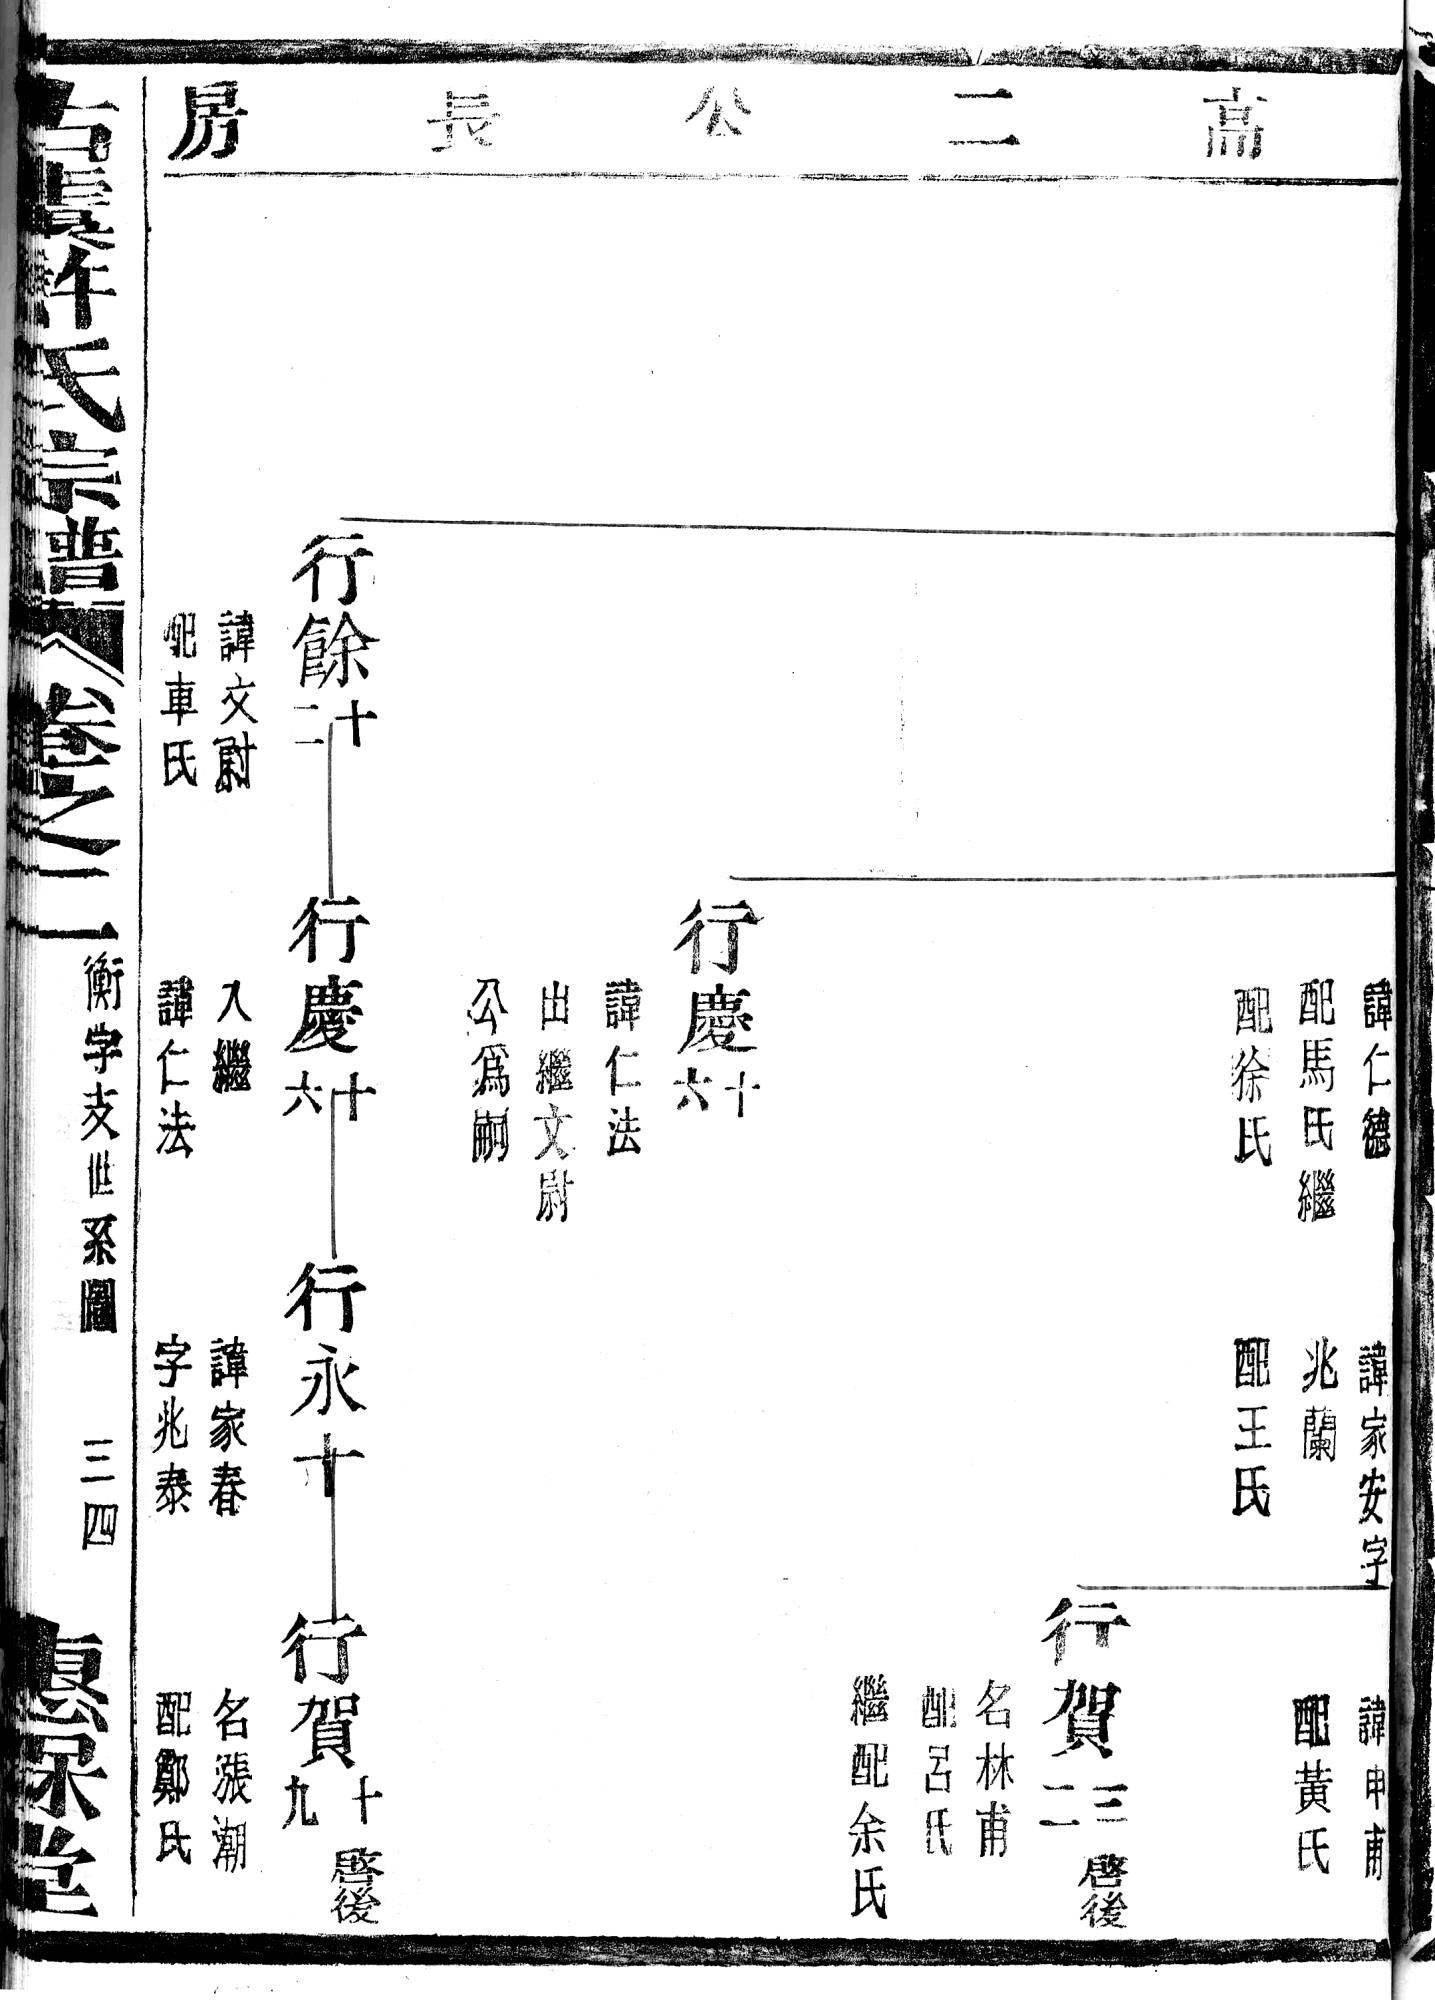 高二公長房
諱仁德
配馬氏繼
配徐氏
諱家安字
兆蘭
配王氏
諱申甫
配黃氏
行賀三二
啓後
名林甫
配呂氏
繼配余氏
行慶十六
諱仁法
出繼文尉
公爲嗣
行餘十二
諱文尉
配車氏
行慶十六
入繼
諱仁法
行永十
諱家春
字兆泰
行賀十九
啓後
名漲潮
配鄭氏
古虞許氏宗譜
卷之二
衡字支世系圖
三四
惠保堂